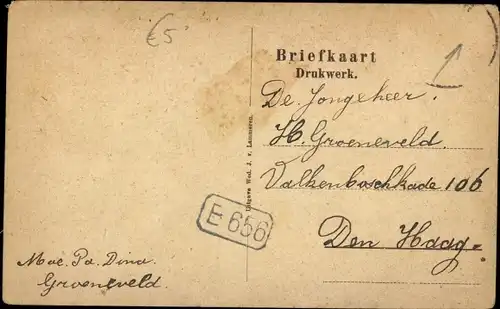 €5
Briefkaart
Drukwerk.
De Jongeheer.
H. Groeneveld.
Valkenboschkade 106
Den Haag.
Uitgave Wed. J. v. Lammeren.
E 656
Moe. Pa. Dina.
Groeneveld.